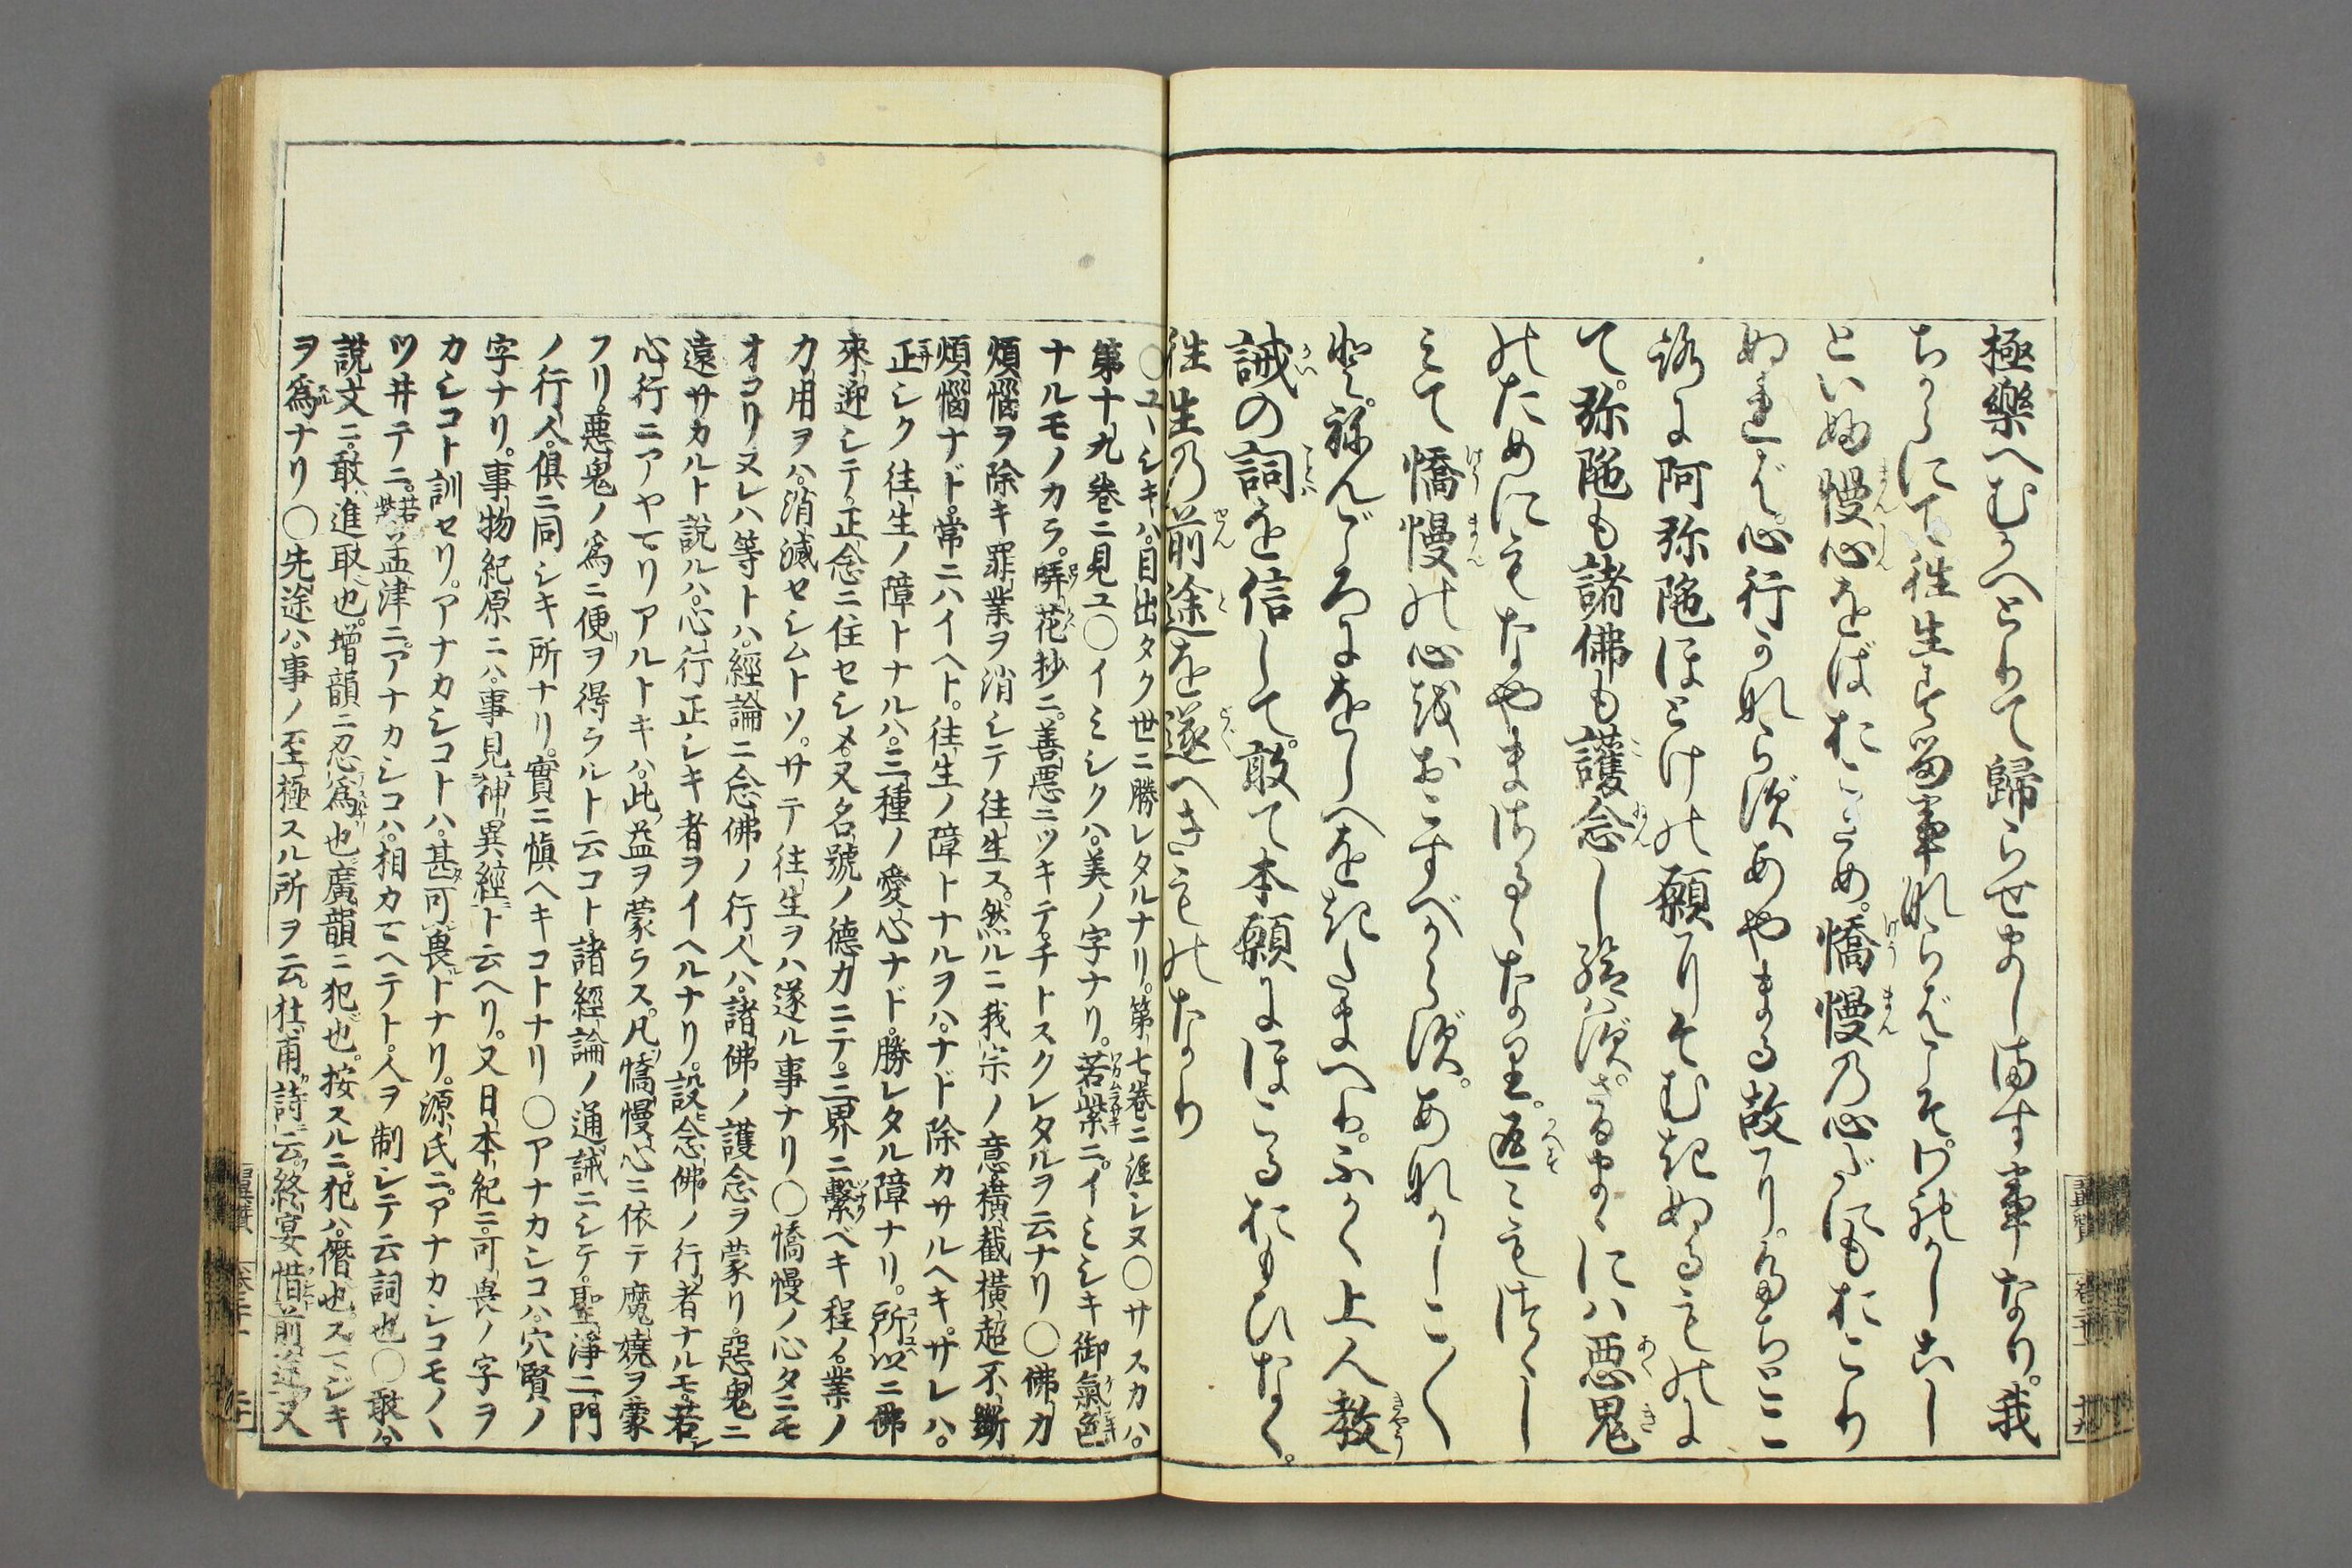 極樂へむかへとりて歸らせまします事なり。我
ちからにて往生する事ならばこそ。われかしこし
といふ慢心をばおこさめ。憍慢の心だにもおこり
ぬれば。心行かならずあやまる故に。たちところ
に阿弥陁ほとけの願にそむきぬるものに
て。弥陁も諸佛も護念し給はず。さるまゝには悪鬼
のためにもなやまさるゝなり。返〻もつゝし
みて憍慢の心をおこすべからず。あなかしこ〳〵
と。ねんごろにをしへをきたまへり。ふかく上人教
誡の詞を信して。敢て本願にほこるおもひなく。
往生の前途を遂へきものなり
〇ユヽシキハ。目出タク世ニ勝レタルナリ。第七巻ニ注シヌ〇サスカハ。
第十九巻ニ見ユ〇イミシクハ。美ノ字ナリ。若紫ニ。イミシキ御氣色
ナルモノカラ。哢花抄ニ。善悪ニツキテ。チトスクレタルヲ云ナリ〇佛カ
煩惱ヲ除キ罪業ヲ消シテ往生ス。然ルニ我宗ノ意横截横超不斷
煩惱ナド。常ニハイヘト。往生ノ障トナルヲハ。ナド除カサルヘキ。サレハ。
正シク往生ノ障トナルハ。三種ノ愛心ナド。勝レタル障ナリ。所以ニ佛
來迎シテ。正念ニ住セシメ。又名號ノ德力ニテ。三界ニ繫ベキ程ノ業ノ
力用ヲハ。消滅セシムトソ。サテ往生ヲハ遂ル事ナリ〇憍慢ノ心タニモ
オコリヌレハ等トハ。經論ニ念佛ノ行人ハ。諸佛ノ護念ヲ蒙リ。惡鬼ニ
遠サカルト説ルハ。心行正シキ者ヲイヘルナリ。設念佛ノ行者ナルモ。若シ
心行ニアヤマリアルトキハ。此益ヲ蒙ラス。凡憍慢心ニ依テ魔嬈ヲ蒙
フリ。悪鬼ノ爲ニ便ヲ得ラルト云コト諸經論ノ通誡ニシテ。聖淨二門
ノ行人。倶ニ同シキ所ナリ。實ニ愼ヘキコトナリ〇アナカシコハ。穴賢ノ
字ナリ。事物紀原ニハ。事見神異經ト云ヘリ。又日本紀ニ。可畏ノ字ヲ
カシコト訓セリ。アナカシコトハ。甚可畏トナリ。源氏ニ。アナカシコモノヽ
ツ井テニ。若紫孟津ニ。アナカシコハ。相カマヘテト。人ヲ制シテ云詞也〇敢ハ。
説文ニ。敢進取也。增韻ニ忍爲也廣韻ニ犯也。按スルニ。犯ハ。僭也。スマジキ
ヲ爲ナリ〇先途ハ。事ノ至極スル所ヲ云。杜甫詩云。終宴惜前途又